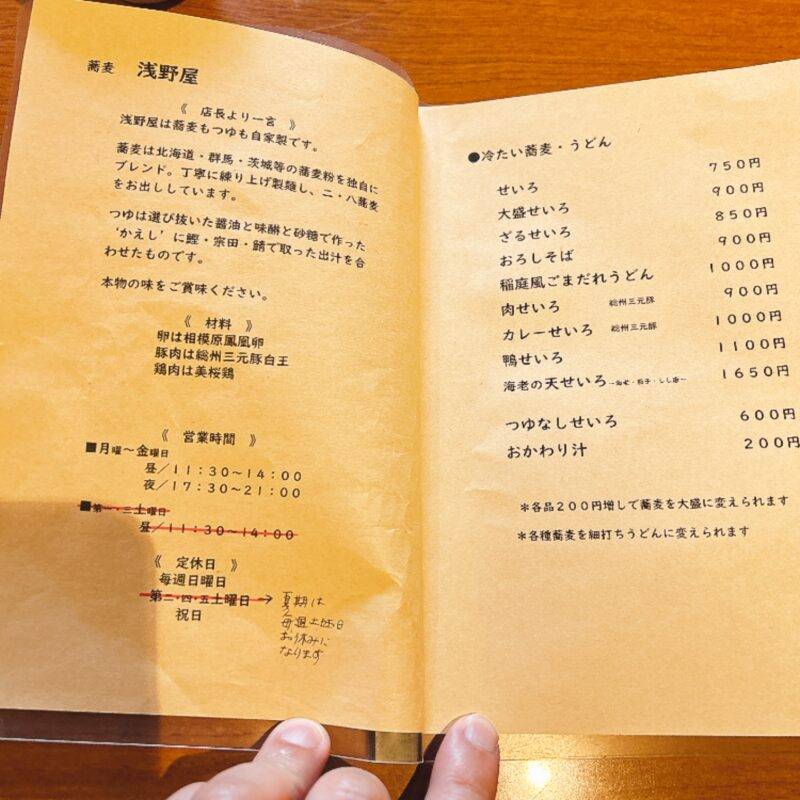 蕎麦 浅野屋
《 店長より一言 》
浅野屋は蕎麦もつゆも自家製です。
蕎麦は北海道・群馬・茨城等の蕎麦粉を独自に
ブレンド。丁寧に練り上げ製麺し、二・八蕎麦
をお出ししています。
つゆは選び抜いた醤油と味醂と砂糖で作った
‘かえし’に鰹・宗田・鯖で取った出汁を合
わせたものです。
本物の味をご賞味ください。
《 材料 》
卵は相模原鳳凰卵
豚肉は総州三元豚白王
鶏肉は美桜鶏
《 営業時間 》
■月曜～金曜日
昼／１１：３０～１４：００
夜／１７：３０～２１：００
■第一・三土曜日
昼／１１：３０～１４：００
《 定休日 》
毎週日曜日
第二・四・五土曜日 → 夏期は
毎週土曜日
お休みに
なります
祝日
●冷たい蕎麦・うどん
せいろ ７５０円
大盛せいろ ９００円
ざるせいろ ８５０円
おろしそば ９００円
稲庭風ごまだれうどん １０００円
肉せいろ 総州三元豚 ９００円
カレーせいろ 総州三元豚 １０００円
鴨せいろ １１００円
海老の天せいろ ～海老・茄子・しし唐～ １６５０円
つゆなしせいろ ６００円
おかわり汁 ２００円
＊各品２００円増しで蕎麦を大盛に変えられます
＊各種蕎麦を細打ちうどんに変えられます